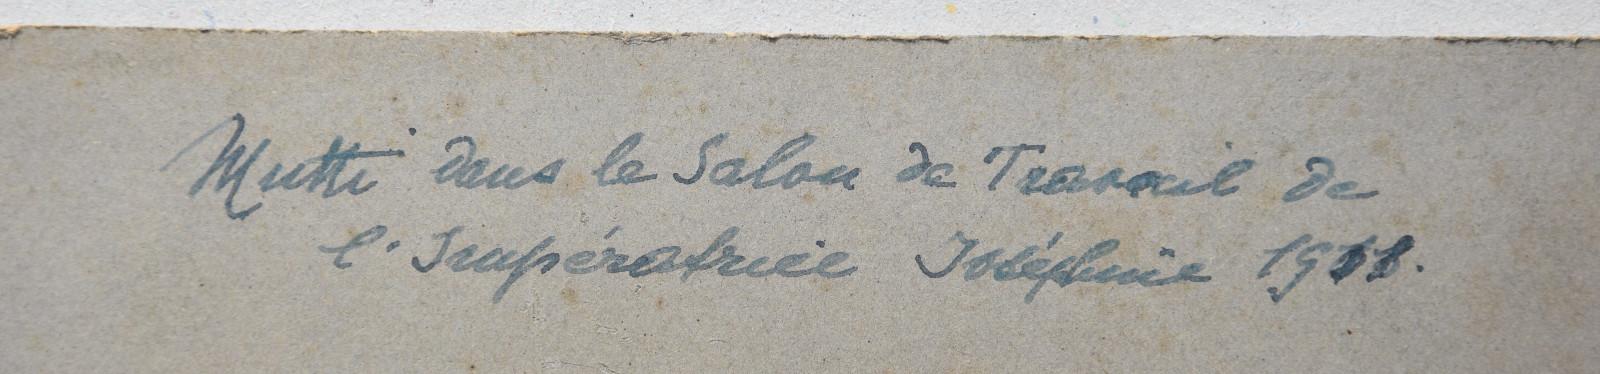 Mutti dans le Salon de Travail de
l'Impératrice Joséphine 1911.